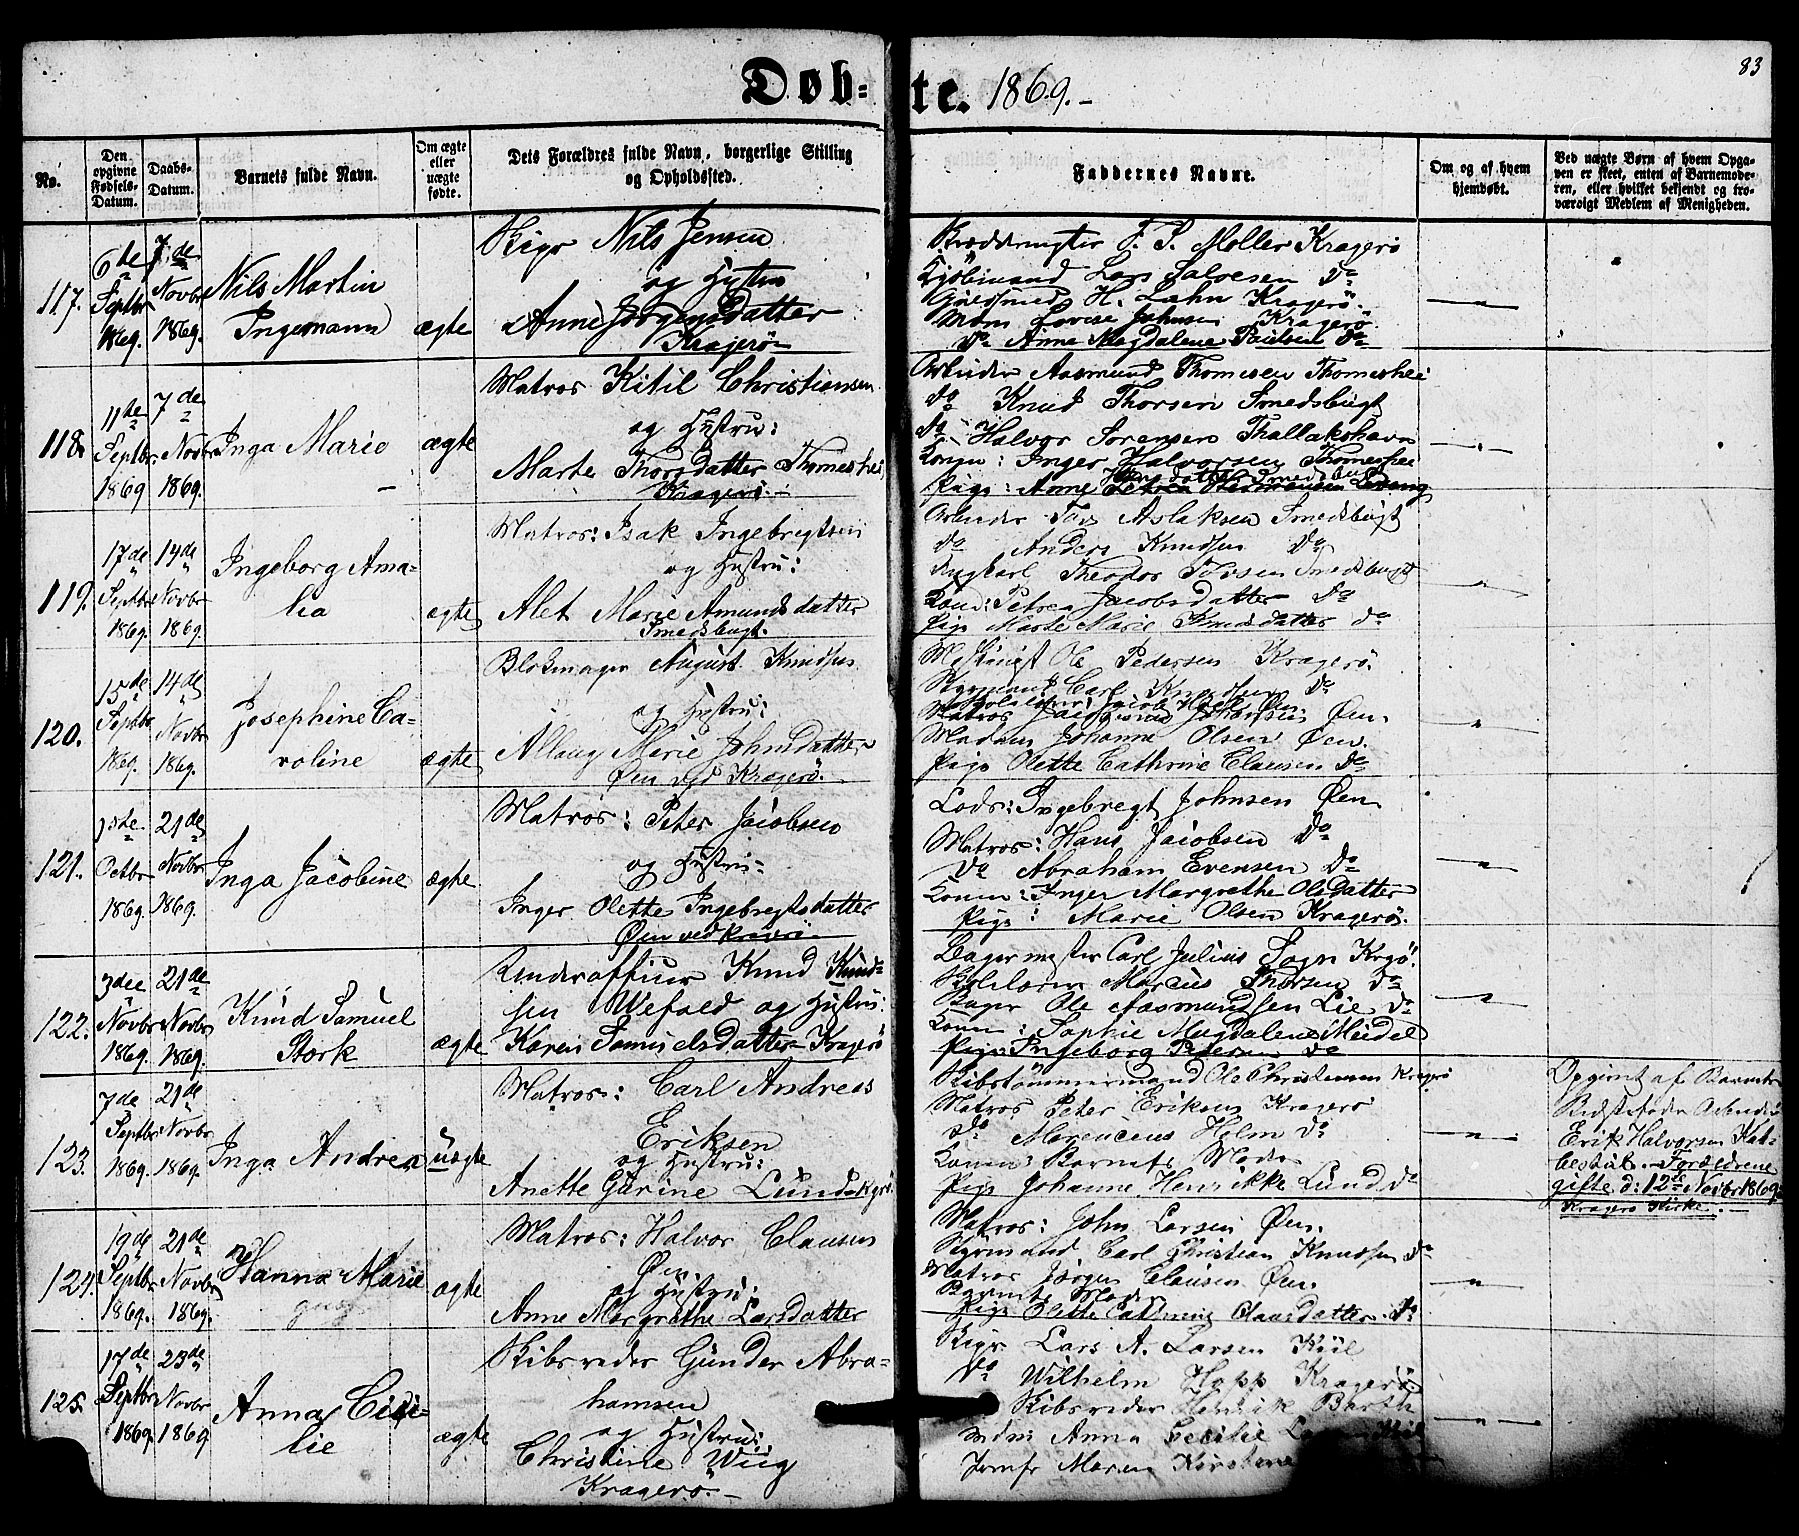 Døb-
te. 1869.-
83
No.
Den opgivne Fødsels-Datum.
Daabs-Datum.
Barnets fulde Navn.
Om ægte eller uægte fødte.
Dets Forældres fulde Navn, borgerlige Stilling
og Opholdssted.
Faddernes Navne.
Om og af hvem
hjemdøbt.
Ved uægte Børn af hvem Opga-
ven er skeet, enten af Barnemode-
ren, eller hvilket bekjendt og tro-
værdigt Medlem af Menigheden.
117.
6te Septbr 1869.
7de Novbr 1869.
Nils Martin
Ingemann
ægte
Nils Jensen
og Hustru
Anne Jørgensdatter
Kragerö
F. P. Møller Kragerö
Kjöbmand Lars Salvesen Do
Guldsmed H. Lahn Kragerö.
Mdm Lovise Johnsen Kragerö.
Do Anne Magdalene Paulsen Do
118.
11te Septbr 1869
7de Novbr 1869.
Inga Marie
ægte
Matros Kitil Christiansen
og Hustru:
Marte Thorsdatter Thomeshei
Kragerö.
Arbeider Aasmund Thomesen Thomeshei
Do Knud Thorsen Smedsbugt
Do Halvor Sörensen Thallakshavn
Konen: Inger Halvorsen Thomeshei
Pige: Anne
119.
17de Septbr 1869.
14de Novbr 1869.
Ingeborg Ama-
lia
ægte
Matros: Isak Ingebregtsen
og Hustru:
Alet Marie Amundsdatter
Smedsbugt.
Arbeider Tor Aslaksen Smedsbugt
Do Anders Knudsen Do
Ungkarl Theodor Torsen Smedsbugt
Kone: Petrea Jacobsdatter Do
Pige Marte Marie Knudsdatter Do
120.
15de Septbr 1869.
14de Novbr 1869.
Josephine Ca-
roline
ægte
Blokmager August Knudsen
og Hustru:
Allaug Marie Johnsdatter
Öen ved Kragerö.
Ole Pedersen Kragerö.
Styrmand Carl Knudsen Do
Matros Johansen Öen.
Madam Johanne Olsen Öen.
Pige Olette Cathrine Clausen Do
121.
1ste Octbr 1869.
21de Novbr 1869.
Inga Jacobine
ægte
Matros: Peter Jacobsen
og Hustru
Inger Olette Ingebregtsdatter
Öen ved Kragerö
Lods: Ingebregt Johnsen Öen
Matros: Hans Jacobsen Do
Do Abraham Evensen Do
Konen: Inger Margrethe Olsdatter
Pige: Marie Olsen Kragerö.
122.
3die Novbr 1869.
21de Novbr 1869.
Knud Samuel
Stork
ægte
Underofficier Knud Knud-
sen Wefald og Hustru:
Karen Samuelsdatter Kragerö
Bagermester Carl Julius Sogn Krgö.
Skolelærer Marcus Thorsen Do
Bager Ole Aasmundsen Lie Do
Konen: Sophie Magdalene Meidel
Pige: Ingeborg Pedersen Do
123.
7de Septbr 1869.
21de Novbr 1869.
Inga Andrea
uægte
Matros: Carl Andreas
Eriksen
og Hustru:
Anette Gurine Lund Krgö
Skibstömmermand Ole Christensen Kragerö
Matros Peter Eriksen Kragerö
Do Marencius Holm Do
Konen: Barnets Moder
Pige Johanne Henrikke Lund Do
Opgivet af Barnets
Bedstefader Arbeider
Erik Halvorsen
Forældrene
gifte d: 12te Novbr 1869
Kragerö Kirke.
124.
19de Septbr 1869.
21de Novbr 1869.
Hanna Marie
ægte
Matros: Halvor Clausen
Öen
og Hustru:
Anne Margrethe Larsdatter
Matros: John Larsen Öen.
Styrmand Carl Christian Knudsen Do
Matros Jörgen Clausen Öen.
Barnets Moder
Pige Olette Cathrine Clausdatter Do
125.
17de Septbr 1869.
23de Novbr 1869
Anna Cici-
lie
ægte
Skibsreder Gunder Abra-
hamsen
og Hustru:
Christine Wiig
Kragerö.
Lars A. Larsen Kiil
Do Wilhelm Hopp Kragerö
Skibsreder Henrik Barth
Mdm: Anna Cecilie
Jomfr Maren Kirstine